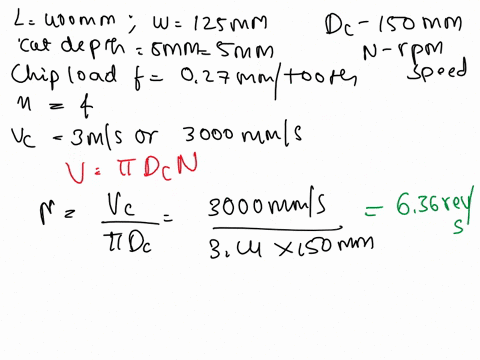 L = 400mm ; W = 125mm
Dc - 150 mm
cut depth = 5mm = 5mm
N - rpm
speed
Chip load f = 0.27 mm/tooth
n = f
Vc = 3m/s or 3000 mm/s
V = π Dc N
N = Vc / π Dc = 3000 mm/s / 3.14 × 150 mm = 6.36 rev/s